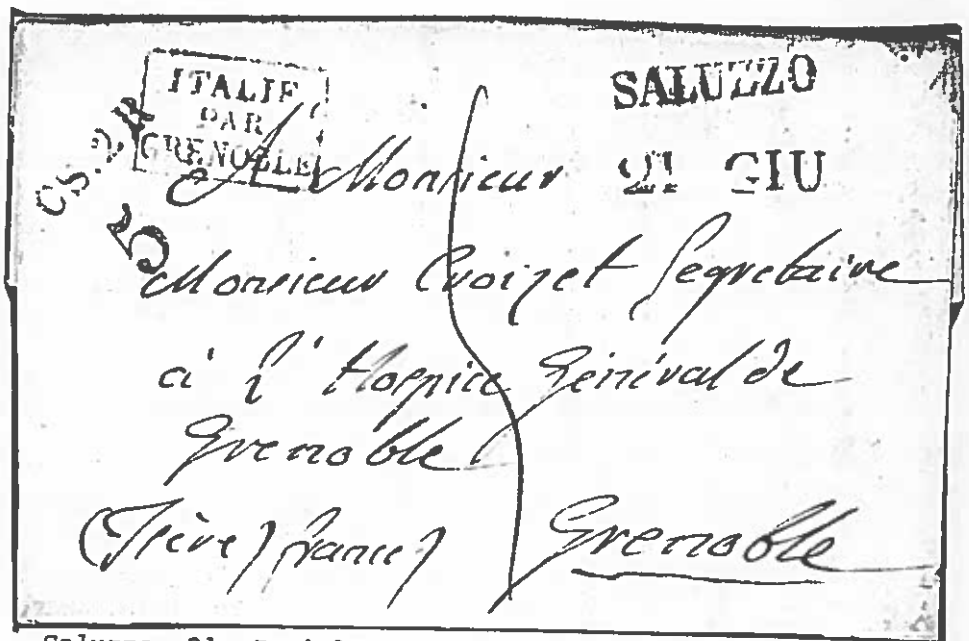 ITALIE
PAR
GRENOBLE
SALUZZO
21 GIU
CS. 2 R
5
A Monsieur
Monsieur Croizet Segretaire
à l'Hospice Général de
Grenoble
(Isère) france)
Grenoble
Saluzzo 21